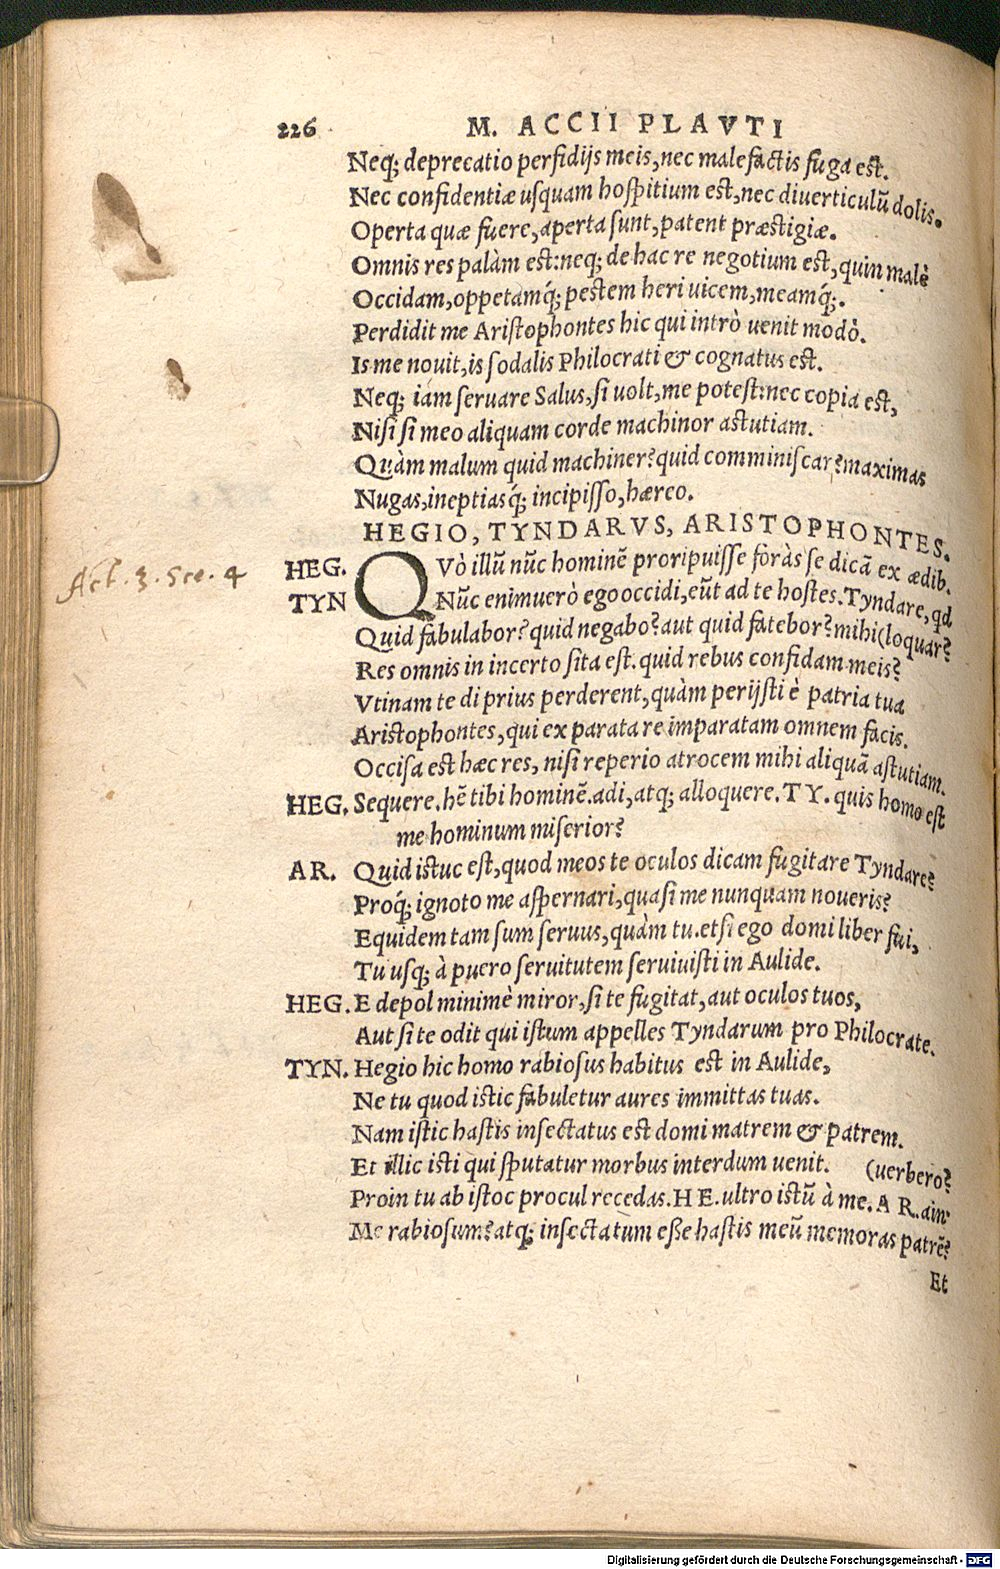 226 M. ACCII PLAVTI
Neq; deprecatio perfidijs meis, nec malefactis fuga est.
Nec confidentiæ usquam hospitium est, nec diuerticulū dolis.
Operta quæ fuere, aperta sunt, patent præstigiæ.
Omnis res palàm est: neq; de hac re negotium est, quin malè
Occidam, oppetamq́; pestem heri uicem, meamq́;.
Perdidit me Aristophontes hic qui intrò uenit modò.
Is me nouit, is sodalis Philocrati & cognatus est.
Neq; iam seruare Salus, si uolt, me potest: nec copia est,
Nisi si meo aliquam corde machinor astutiam.
Quàm malum quid machiner? quid comminiscar? maximas
Nugas, ineptiasq́; incipisso, hæreo.
HEGIO, TYNDARVS, ARISTOPHONTES.
Act. 3. Sce. 4
HEG. QVò illū nūc hominē proripuisse foràs se dicā ex ædib.
TYN Nūc enimuerò ego occidi, eūt ad te hostes. Tyndare, qd
Quid fabulabor? quid negabo? aut quid fatebor? mihi (loquar?
Res omnis in incerto sita est. quid rebus confidam meis?
Vtinam te di prius perderent, quàm perijsti è patria tua
Aristophontes, qui ex parata re imparatam omnem facis.
Occisa est hæc res, nisi reperio atrocem mihi aliquā astutiam.
HEG. Sequere. hē tibi hominē. adi, atq; alloquere. TY. quis homo est
me hominum miserior?
AR. Quid istuc est, quod meos te oculos dicam fugitare Tyndare?
Proq́; ignoto me aspernari, quasi me nunquam noueris?
Equidem tam sum seruus, quàm tu. etsi ego domi liber fui,
Tu usq; à puero seruitutem seruiuisti in Aulide.
HEG. E depol minimè miror, si te fugitat, aut oculos tuos,
Aut si te odit qui istum appelles Tyndarum pro Philocrate.
TYN. Hegio hic homo rabiosus habitus est in Aulide,
Ne tu quod istic fabuletur aures immittas tuas.
Nam istic hastis insectatus est domi matrem & patrem.
Et illic isti qui sputatur morbus interdum uenit. (uerbero?
Proin tu ab istoc procul recedas. HE. ultro istū à me. AR. ain
Me rabiosum? atq; insectatum esse hastis meū memoras patrē?
Et
Digitalisierung gefördert durch die Deutsche Forschungsgemeinschaft - DFG